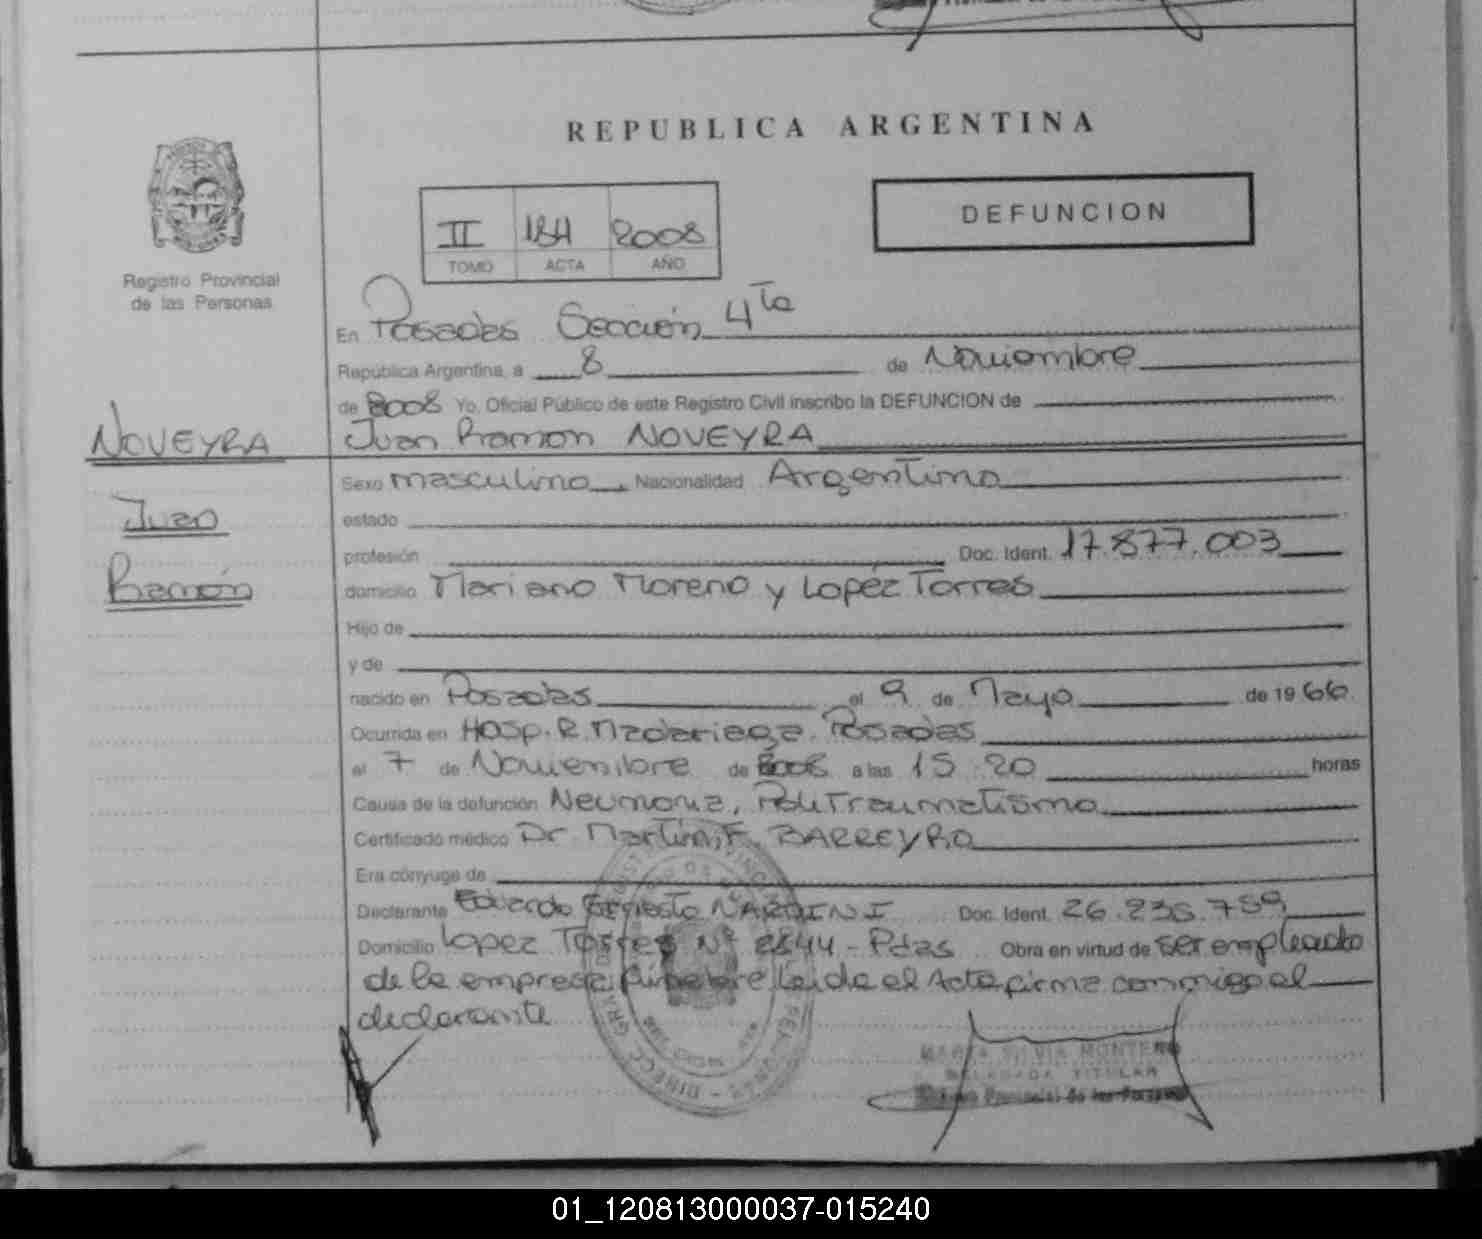 REPUBLICA ARGENTINA
II 184 2008
TOMO ACTA AÑO
DEFUNCION
Registro Provincial
de las Personas
En Posadas Sección 4ta
Republica Argentina, a 8 de Noviembre
de 2008 Yo, Oficial Público de este Registro Civil inscribo la DEFUNCION de
NOVEYRA
Juan Ramon NOVEYRA
Juan
Ramón
Sexo masculino, Nacionalidad Argentina
estado
profesión Doc. Ident. 17.877.003
domicilio Mariano Moreno y Lopéz Torres
Hijo de
y de
nacido en Posadas, el 9 de Mayo de 1966
Ocurrida en Hosp. R. Madariaga. Posadas
el 7 de Noviembre de 2008 a las 15:20 horas
Causa de la defunción Neumonia, PoliTraumatismo
Certificado médico Dr Martin F. BARREYRO
Era cónyuge de
Declarante Eduardo Ernesto NARDINI Doc. Ident. 26.236.759
Domicilio Lopez Torres Nº 2844 - Pdas Obra en virtud de ser empleado
de la empresa fúnebre Leída el Acta firma conmigo el
declarante
MARIA SILVIA MONTERO
DELEGADA TITULAR
Provincial de las Personas
01_120813000037-015240